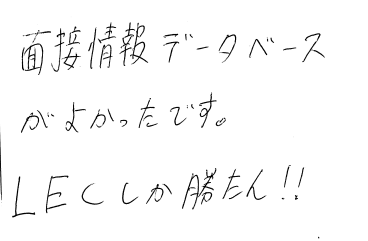 面接情報データベース
がよかったです。
LECしか勝たん!!